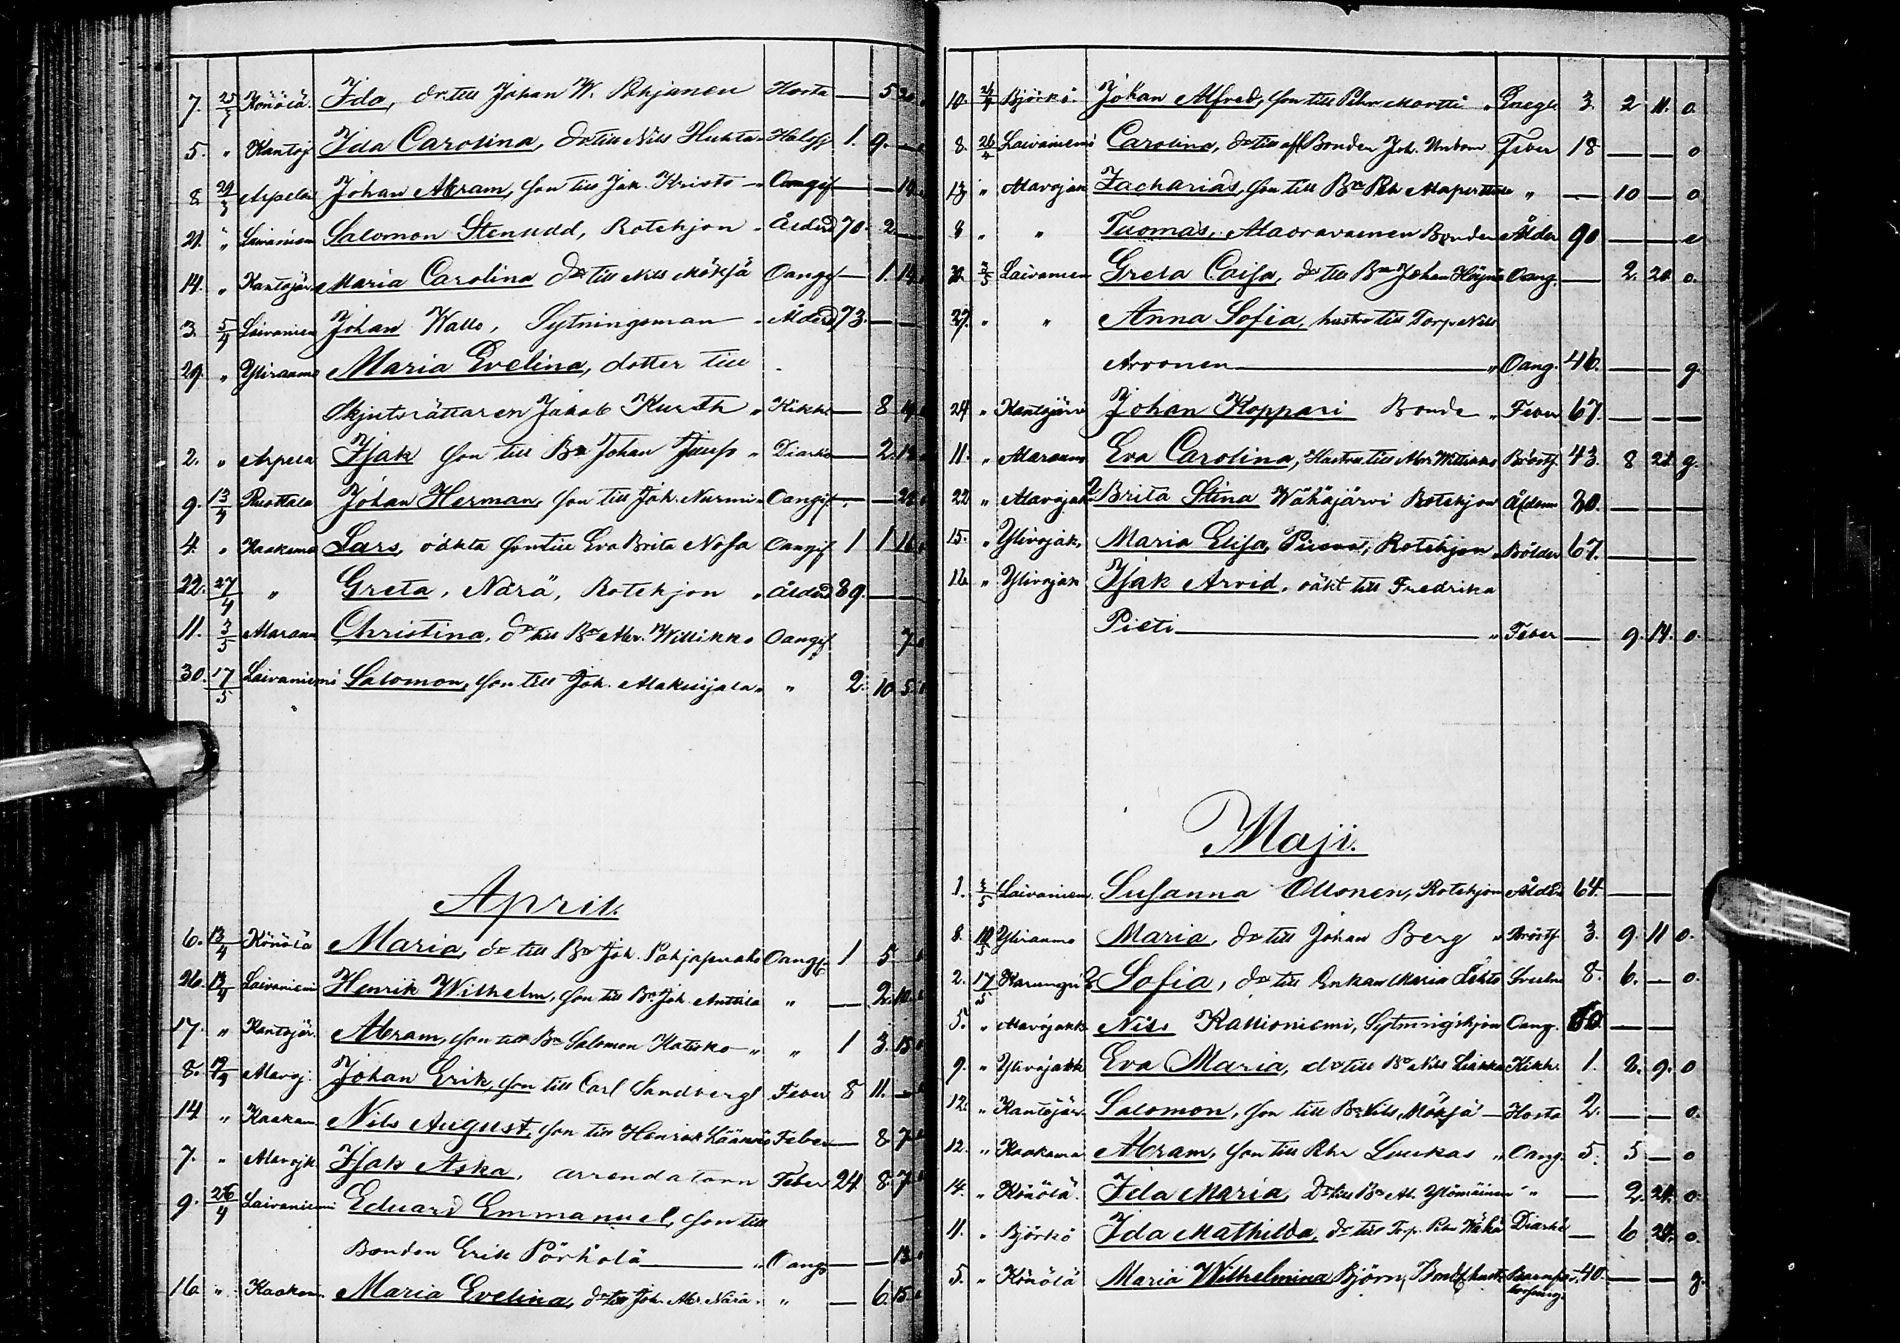 7. 25/3 Könölä. Ida, dr till Johan W. Pohjanen Hosta — 5 20
5. " Kantoj Ida Carolina, dr till Nils Huhta " Halsfl 1. 9. —
8 29/3 Arpela Johan Abram, son till Joh. Kristo — Oangif — — 14
21. " Laivaniem Salomon Stenudd, Rotehjon " Ålderd 70. 2 —
14. " Kantojär. Maria Carolina dr till Nils Mökjä Oangif — 1. 14
3. 5/4 Laivaniem Johan Kallo, Sytningsman " Ålderd 73. — —
29 " Yliraumo Maria Evelina, dotter till
Skjutsrättaren Jakob Kurth " Kikh — 8 19
2. " Arpela Isak son till Br Johan Juuso " Diarhe — 2. 12
9. 13/4 Ruottala Johan Herman, son till Joh. Nurmi " Oangif — — 22
4. " Kaakama Lars, oäkta son till Eva Brita Nosa Oangif 1 1 16
22. 27/4 " Greta, Närä, Rotehjon " Ålderd 89. — —
11. 3/5 Alaraum Christina, dr till Br Abr. Willikko Oangif 7
30. 17/5 Laivaniemi Salomon, son till Joh. Alakuijala " " 2. 10 5
April.
6. 13/4 Könölä Maria, dr till Br Joh. Pohjapuuska Oangif 1 5
26. 13/4 Laivaniemi Henrik Wilhelm, son till Br Joh. Anttila " — 2. 10.
17. " Kantojär. Abram, son till Br Salomon Hatikko — " " 1 3. 15
8. 19/4 Alavoj. Johan Erik, son till Carl Sandberg Feber 8 11. —
14 " Kaakam Nils August, son till Henrik Lääninki Feber — 8 7
7. " Alavojk. Isak Aska, arrendatorn Feber 24. 8. 7
9. 26/4 Laivaniemi Eduard Emmanuel, son till
Bonden Erik Pörhölä — " Oangif — — 13
16 " Kaakam Maria Evelina, dr till Joh. Abr. Närä. " — 6. 15
10. 24/4 Björkö. Johan Alfred, son till Pehr Martti " Engelsk 3. 2 11. o.
8. 26/4 Laivaniemi Carolina, dr till afl Bonden Joh. Unbom Feber 18 — — o
13 " Alavojak Zacharias, son till Br Petr Alaperttula " — 10 — o
8 " " Tuomas, Alaoravainen Bonden Ålder 90 — — e
3/5 Laivaniem Greta Caisa, dr till Br Johan Oang. — 2. 20 o.
27. " " Anna Sofia, hustru till Torp Nils
Arvonen — " Oang. 46. — — g.
24 " Kantojärvi Johan Koppari Bonde " Feber 67. — —
11. " Alaraum Eva Carolina, Hustru till Abr Willikko Bröstf. 43. 8 21 g.
22 " Alavojak Brita Stina Wähäjärvi Rotehjon Ålderd 80. — —
15. " Ylivojak, Maria Elisa, Rotehjon " Ålder 67. — —
12. " Ylivojak Isak Arvid, oäkt till Fredrika
Pieti — " Feber — 9. 14. o.
Maji.
1. 3/5 Laivaniem. Susanna Ollonen, Rotehjon Ålderd 64. — —
8. 10/5 Yliraumo Maria, dr till Johan Berg " Bröstf. 3. 9. 11 o.
2. 17/5 Karungi Sofia, dr till Enkan Maria Lehto Svulm 8. 6. — o.
5. " Alavojakk. Nils Kallioniemi, Sytningshjon Oang. 60 — —
9. " Ylivojakk Eva Maria, dr till Br Nils Liakka Kikh. 1. 2. 9. o
12. " Kantojär. Salomon, son till Br Nils Mökjä — Hosta 2. — — o.
12. " Kaakama Abram, son till Pehr Luukas " Oang. 5. 5 — o
14. " Könölä. Ida Maria, Dr till Br Ab. Ylömäinen " " — 2. 24. o.
11. " Björkö Ida Mathilda, dr till Torp. Pehr Wähä Diarhé — 6 24. o.
5. " Könölä Maria Wilhelmina Björn, Bond.hustru Barnför-
lossning. 40. — — g.